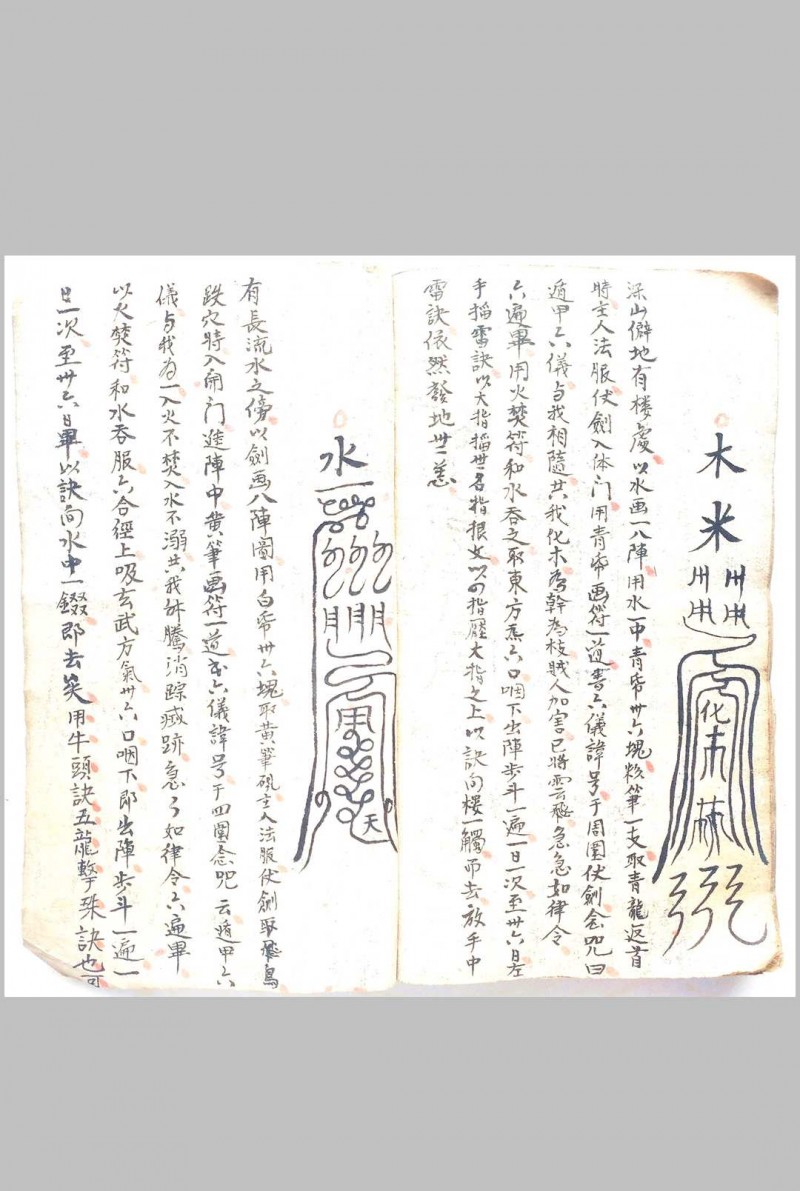 木
米
化
深山僻地有楼處以水画一八陣用水一中青帋卅六塊粉筆一支取青龍返首
時主人法服仗劍入休门用青帋画符一道書六儀諱号于周圍仗劍念咒曰
遁甲六儀与我相隨共我化木為幹為枝賊人加害已將雲飛急急如律令
六遍畢用火焚符和水吞之取東方炁六口咽下出陣步斗一遍一日一次至卅六日左
手掐雷訣以大指掐世名指根文以四指壓大指之上以訣向楼一觸而去放手中
雷訣依然發地世恙
水
天
有長流水之傍以劍画八陣圖用白帋卅六塊取黄筆硯主人法服仗劍取飛鳥
跌穴時入開门進陣中黄筆画符一道書六儀諱号于四圍念咒云遁甲六
儀与我為一入火不焚入水不溺共我外騰消踪滅跡急々如律令六遍畢
以火焚符和水吞服六合徑上吸玄武方氣卅六口咽下即出陣步斗一遍一
日一次至卅六日畢以訣向水中一錣即去矣用牛頭訣五龍擎珠訣也可